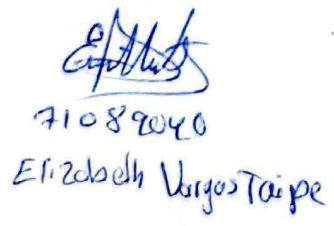 71089040
Elizabeth Vargas Taipe